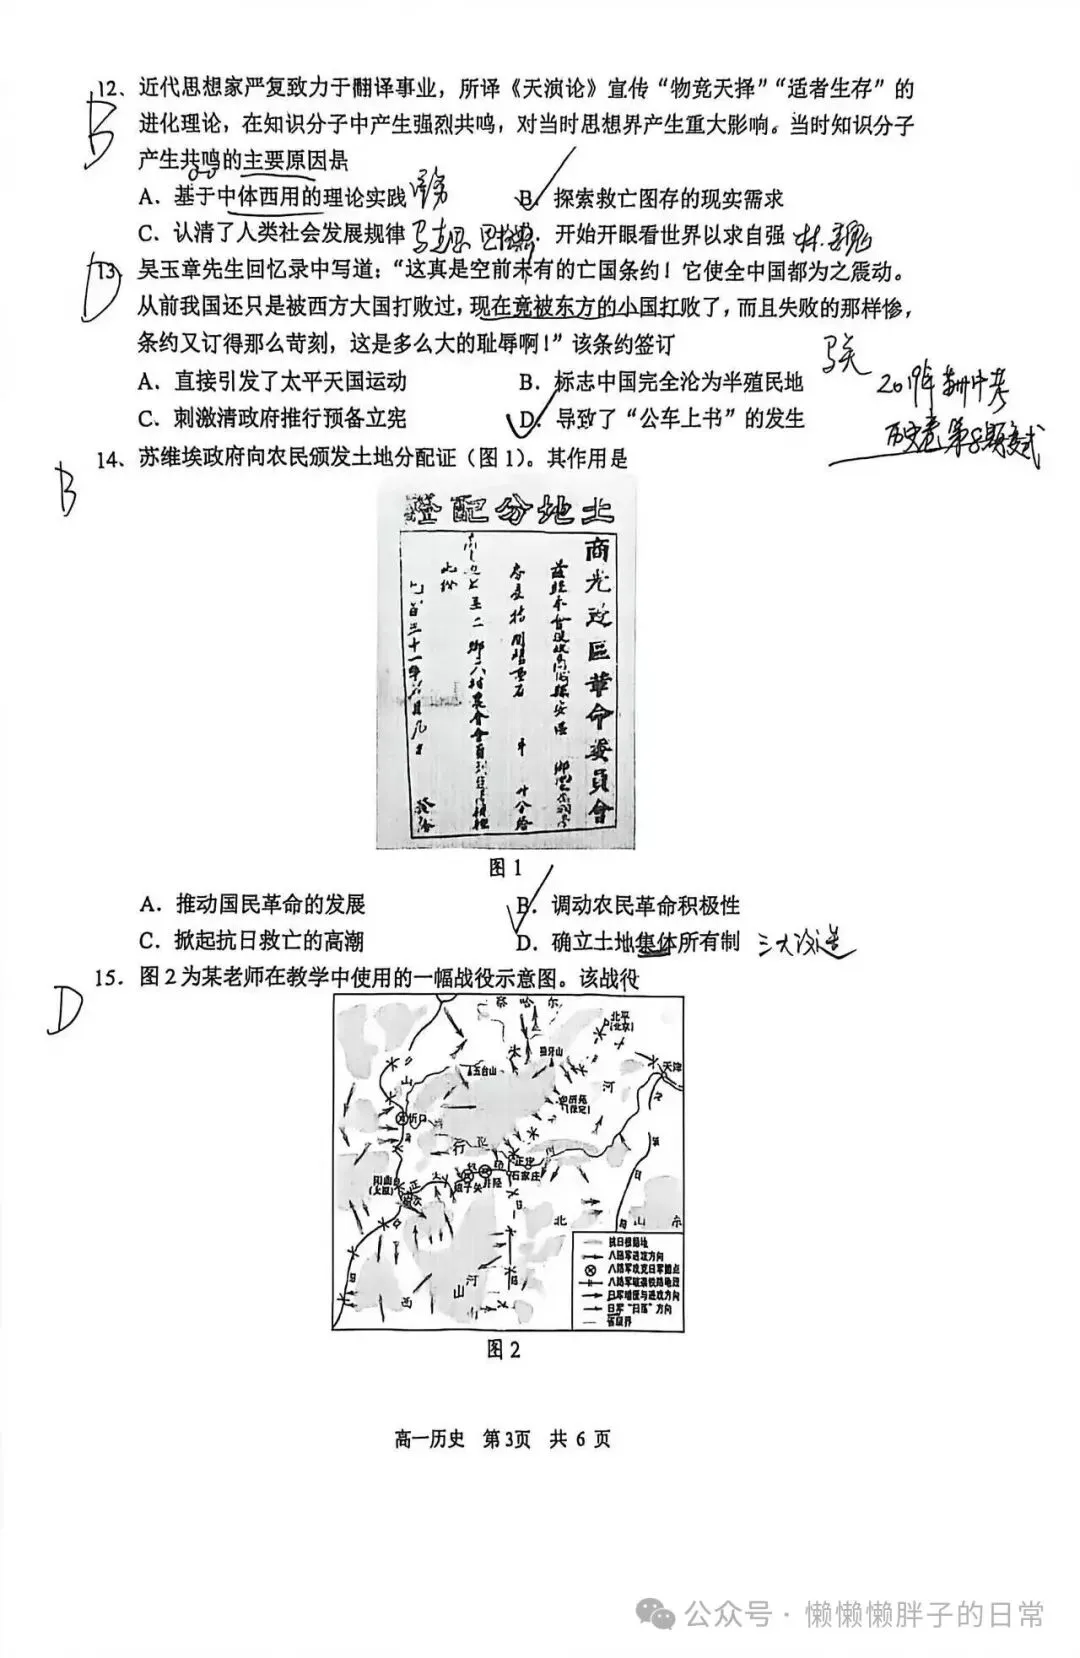 12、近代思想家严复致力于翻译事业，所译《天演论》宣传“物竞天择”“适者生存”的
B
进化理论，在知识分子中产生强烈共鸣，对当时思想界产生重大影响。当时知识分子
产生共鸣的主要原因是
A．基于中体西用的理论实践
B．探索救亡图存的现实需求
C．认清了人类社会发展规律 马克思
开始开眼看世界以求自强 林 魏
13、吴玉章先生回忆录中写道：“这真是空前未有的亡国条约！它使全中国都为之震动。
D
从前我国还只是被西方大国打败过，现在竟被东方的小国打败了，而且失败的那样惨，
条约又订得那么苛刻，这是多么大的耻辱啊！”该条约签订
马关
A．直接引发了太平天国运动
B．标志中国完全沦为半殖民地
2019年 中考
C．刺激清政府推行预备立宪
D．导致了“公车上书”的发生
历史卷第8题变式
14、苏维埃政府向农民颁发土地分配证（图1）。其作用是
B
土地分配證
商光边區革命委員會
图1
A．推动国民革命的发展
B．调动农民革命积极性
C．掀起抗日救亡的高潮
D．确立土地集体所有制 三大改造
15．图2为某老师在教学中使用的一幅战役示意图。该战役
D
察哈尔
北平
(北京)
太
狼牙山
天津
五台山
山
河
(保定)
忻口
行
正定
石家庄
井陉
娘子关
阳曲
(太原)
北
山东
河
山
西
抗日根据地
八路军进攻方向
八路军攻克日军据点
八路军破袭铁路地段
日军增援与进攻方向
日军“扫荡”方向
省级界
图2
高一历史 第3页 共6页
公众号·懒懒懒胖子的日常